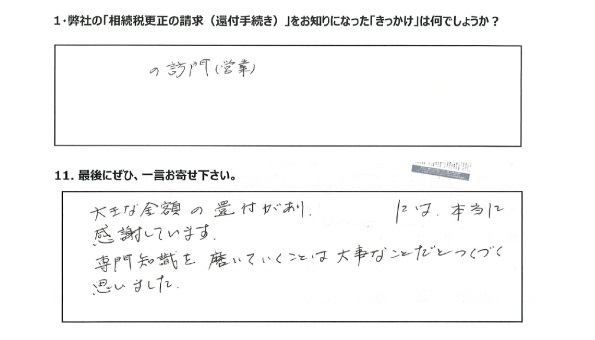 1・弊社の「相続税更正の請求（還付手続き）」をお知りになった「きっかけ」は何でしょうか？
の訪門(営業)
11. 最後にぜひ、一言お寄せ下さい。
大きな金額の還付があり、 には、本当に
感謝しています。
専門知識を磨いていくことは大事なことだとつくづく
思いました。